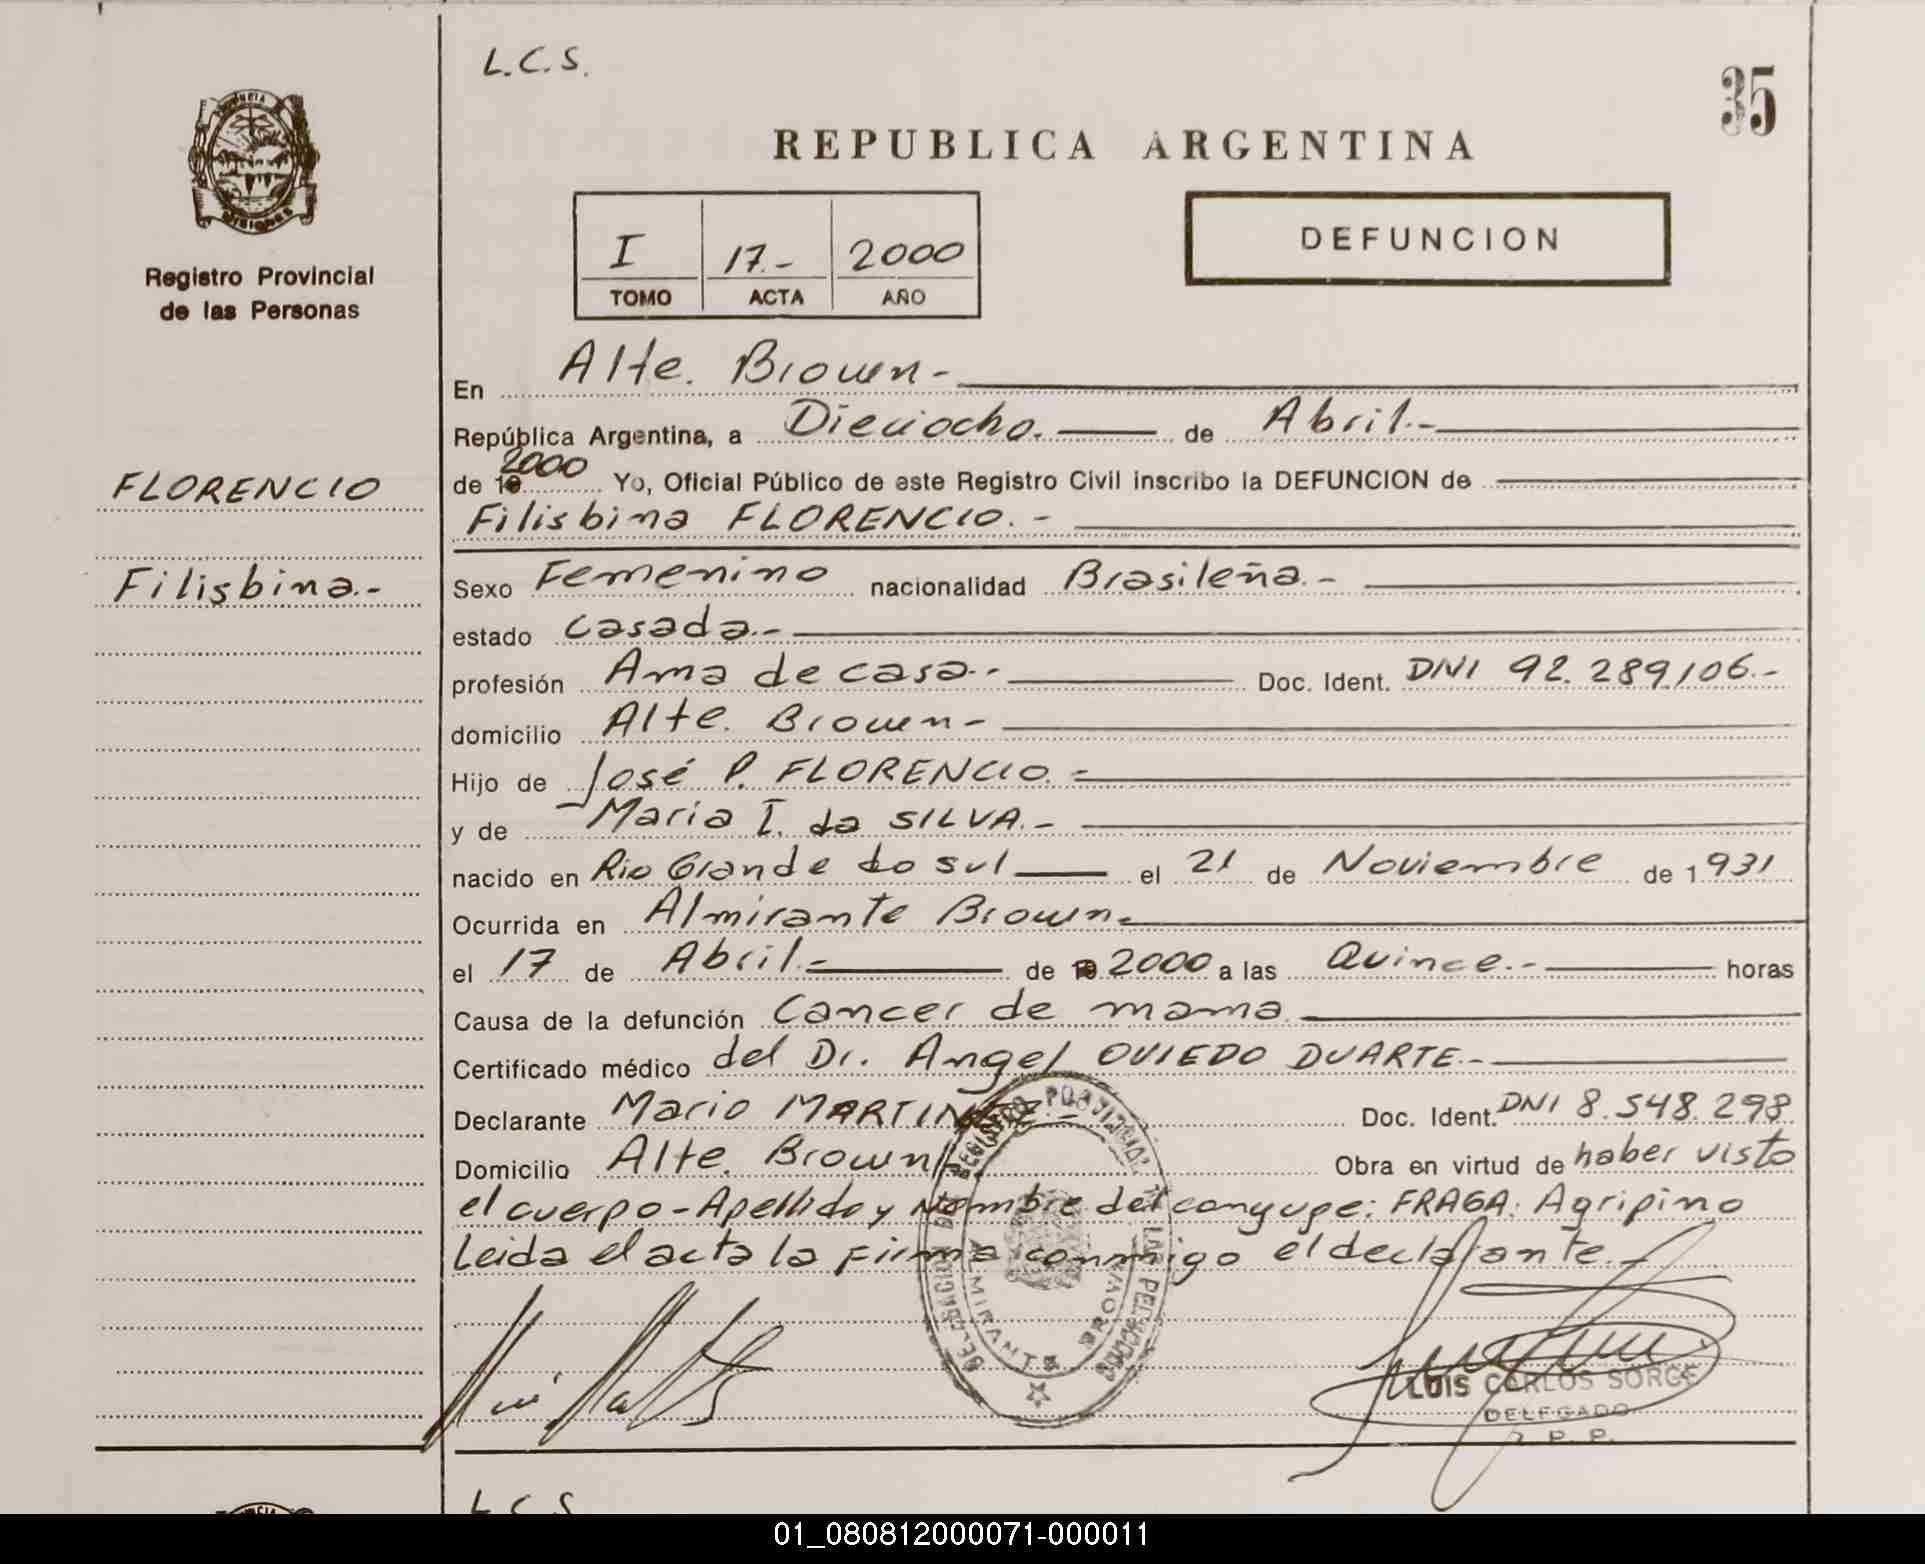 L.C.S.
35
REPUBLICA ARGENTINA
MISIONES
Registro Provincial
de las Personas
I 17.- 2000
TOMO ACTA AÑO
DEFUNCION
En Alte. Brown-
República Argentina, a Dieciocho. de Abril.-
de 19 2000 Yo, Oficial Público de este Registro Civil inscribo la DEFUNCION de
Filisbina FLORENCIO.-
FLORENCIO
Filisbina.-
Sexo Femenino nacionalidad Brasileña.-
estado casada.-
profesión Ama de casa.- Doc. Ident. DNI 92.289.106.-
domicilio Alte. Brown-
Hijo de José P. FLORENCIO.-
y de Maria I. da SILVA.-
nacido en Rio Grande do sul el 21 de Noviembre de 1931
Ocurrida en Almirante Brown.
el 17 de Abril.- de 19 2000 a las Quince.- horas
Causa de la defunción Cancer de mama
Certificado médico del Dr. Angel OVIEDO DUARTE.-
Declarante Mario MARTINEZ.- Doc. Ident. DNI 8.548.298
Domicilio Alte. Brown Obra en virtud de haber visto
el cuerpo-Apellido y Nombre del conyuge: FRAGA: Agripino
Leida el acta la Firma conmigo el declarante.-
REGISTRO PROVINCIAL DE LAS PERSONAS
ALMIRANTE BROWN
LUIS CARLOS SORGE
DELEGADO
R. P. P.
L C S
01_080812000071-000011